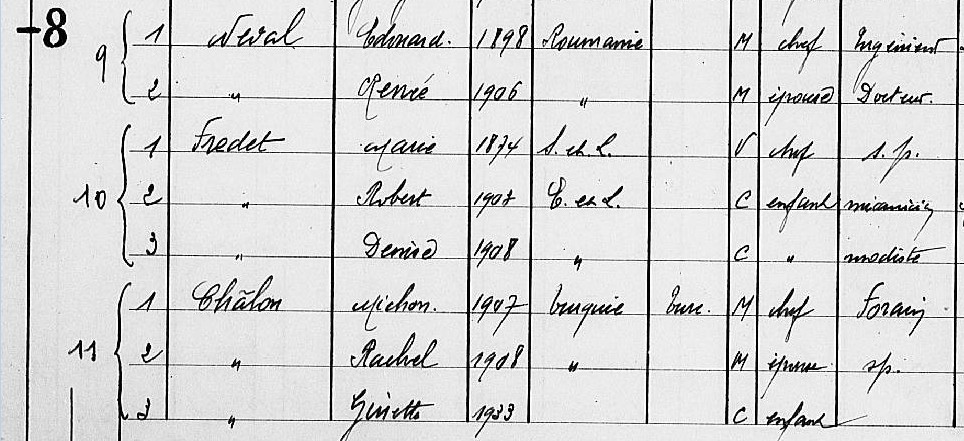 -8
9 1 Neval Edouard. 1898 Roumanie M chef Ingénieur
2 " Renée 1906 " M épouse Docteur.
10 1 Fredet Marie 1874 S. et L. V chef s. p.
2 " Robert 1907 E. et L. C enfant mécanicien
3 " Denise 1908 " C " modiste
11 1 Châlon Michon. 1907 Turquie Turc. M chef Forain
2 " Rachel 1908 " M épouse sp.
3 " Ginette 1933 C enfant